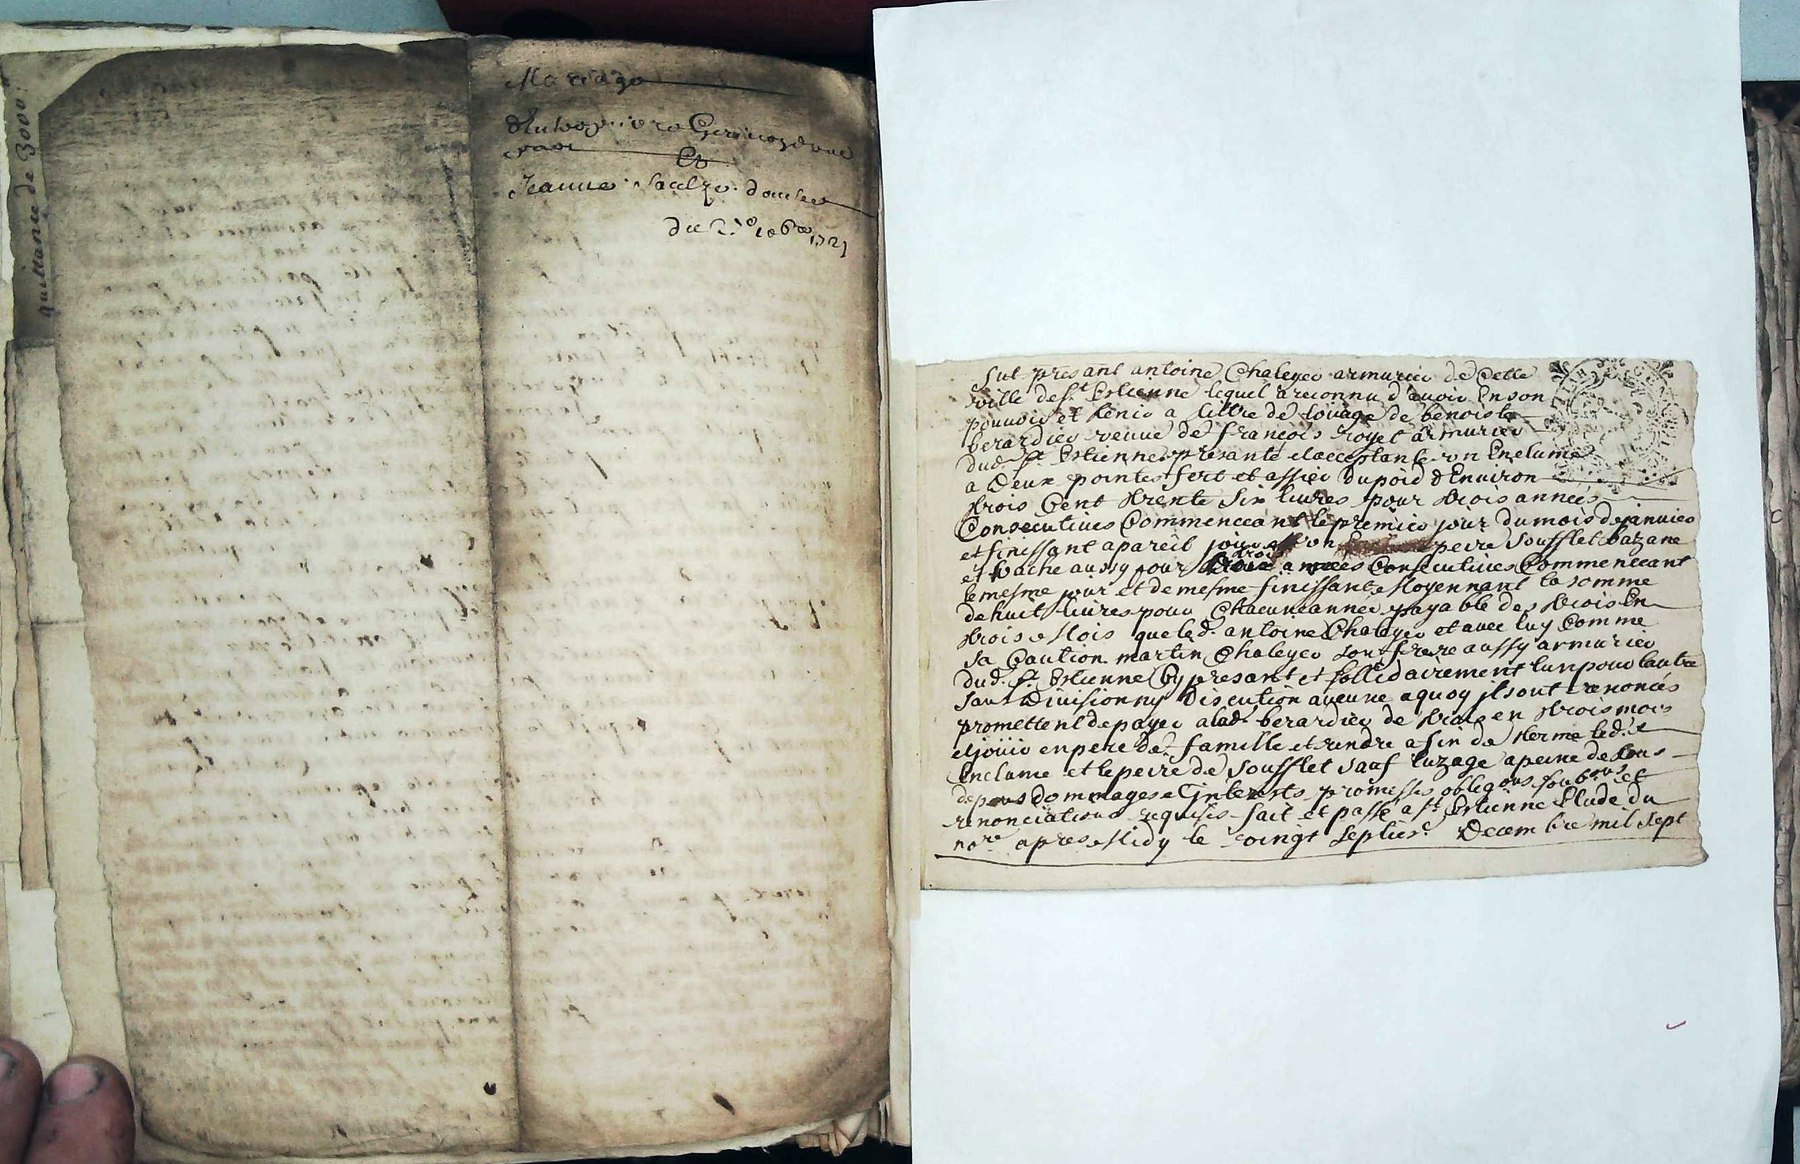 quittance de 3000
Mariage
Et
Jeanne
1721
Fut presant antoine Chaleyer armurier de Cette
ville de st. Estienne lequel a reconnu d'avoir En son
pouvoir et tenir a tittre de louage de benoiste
berardier veuve de françois royet armurier
dud. st. Estienne presante et acceptante un Enclume
a Deux pointes fert et assier du poid d'Environ
trois Cent trente Six livres pour trois années
Consecutives Commenceant le premier jour du mois de janvier
et finissant a pareil jour et un peire soufflet bazane
et vache aussy pour trois années Consecutives Commenceant
le mesme jour et de mesme finissant Moyennant la somme
de huit livres pour Chacune année payable de trois En
trois Mois que led. antoine Chaleyer et avec luy Comme
sa Caution martin Chaleyer son frere aussy armurier
dud. st. Estienne Cy presant et sollidairement lun pour lautre
sans Division ny Discution aucune a quoy ils ont renoncés
promettent de payer a lad. berardier de trois en trois mois
et joüir en pere de famille et rendre a fin de terme led.
Enclume et le peire de soufflet sauf luzage a peine de tous
depens dommages et interests promesses obligons soubons et
renonciations requises fait et passé a st. Estienne Etude du
nore apres Midy le vingt septies. Decembre mil sept